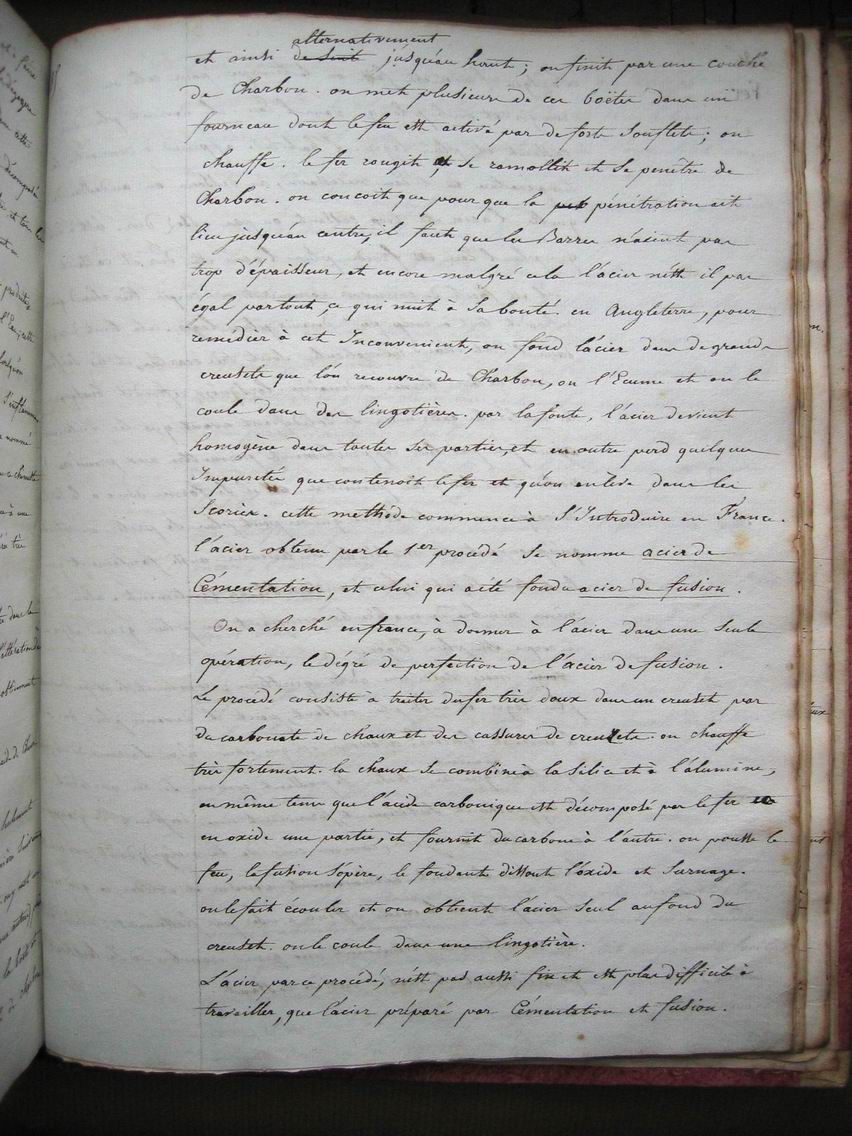 alternativement
et ainsi de suite jusqu'au haut ; on finit par une couche
de Charbon. on met plusieurs de ces boëtes dans un
fourneau dont le feu est activé par de forts soufflets ; on
chauffe. le fer rougit, et se ramollit et se penêtre de
Charbon. on concoit que pour que la pénétration ait
lieu jusqu'au centre, il faut que les Barres n'aient pas
trop d'épaisseur, et encore malgré cela l'acier n'est il pas
égal partout, ce qui nuit à sa bonté. en Angleterre, pour
remedier à cet Inconvenient, on fond l'acier dans de grands
creusets que l'on recouvre de Charbon, on l'Ecume et on le
coule dans des lingotières. par la fonte, l'acier devient
homogène dans toutes ses parties, et en outre perd quelques
Impuretés que contenoit le fer et qu'on enlève dans les
Scories. cette methode commence à S'Introduire en France.
l'acier obtenu par le 1er procédé se nomme acier de
Cémentation, et celui qui a été fondu acier de fusion.
On a cherché en france, à donner à l'acier dans une seule
opération, le dégré de perfection de l'acier de fusion.
Le procédé consiste à traiter du fer très doux dans un creuset par
du carbonate de chaux et des cassures de creusets. on chauffe
très fortement. la chaux se combine à la Silice et à l'alumine,
en même tems que l'acide carbonique est décomposé par le fer
en oxide une partie, et fournit du carbone à l'autre. on pousse le
feu, la fusion s'opère, le fondant dissout l'oxide et surnage.
on le fait écouler et on obtient l'acier seul au fond du
creuset. on le coule dans une lingotière.
L'acier par ce procédé, n'est pas aussi fin et est plus difficile à
travailler, que l'acier préparé par Cémentation et fusion.